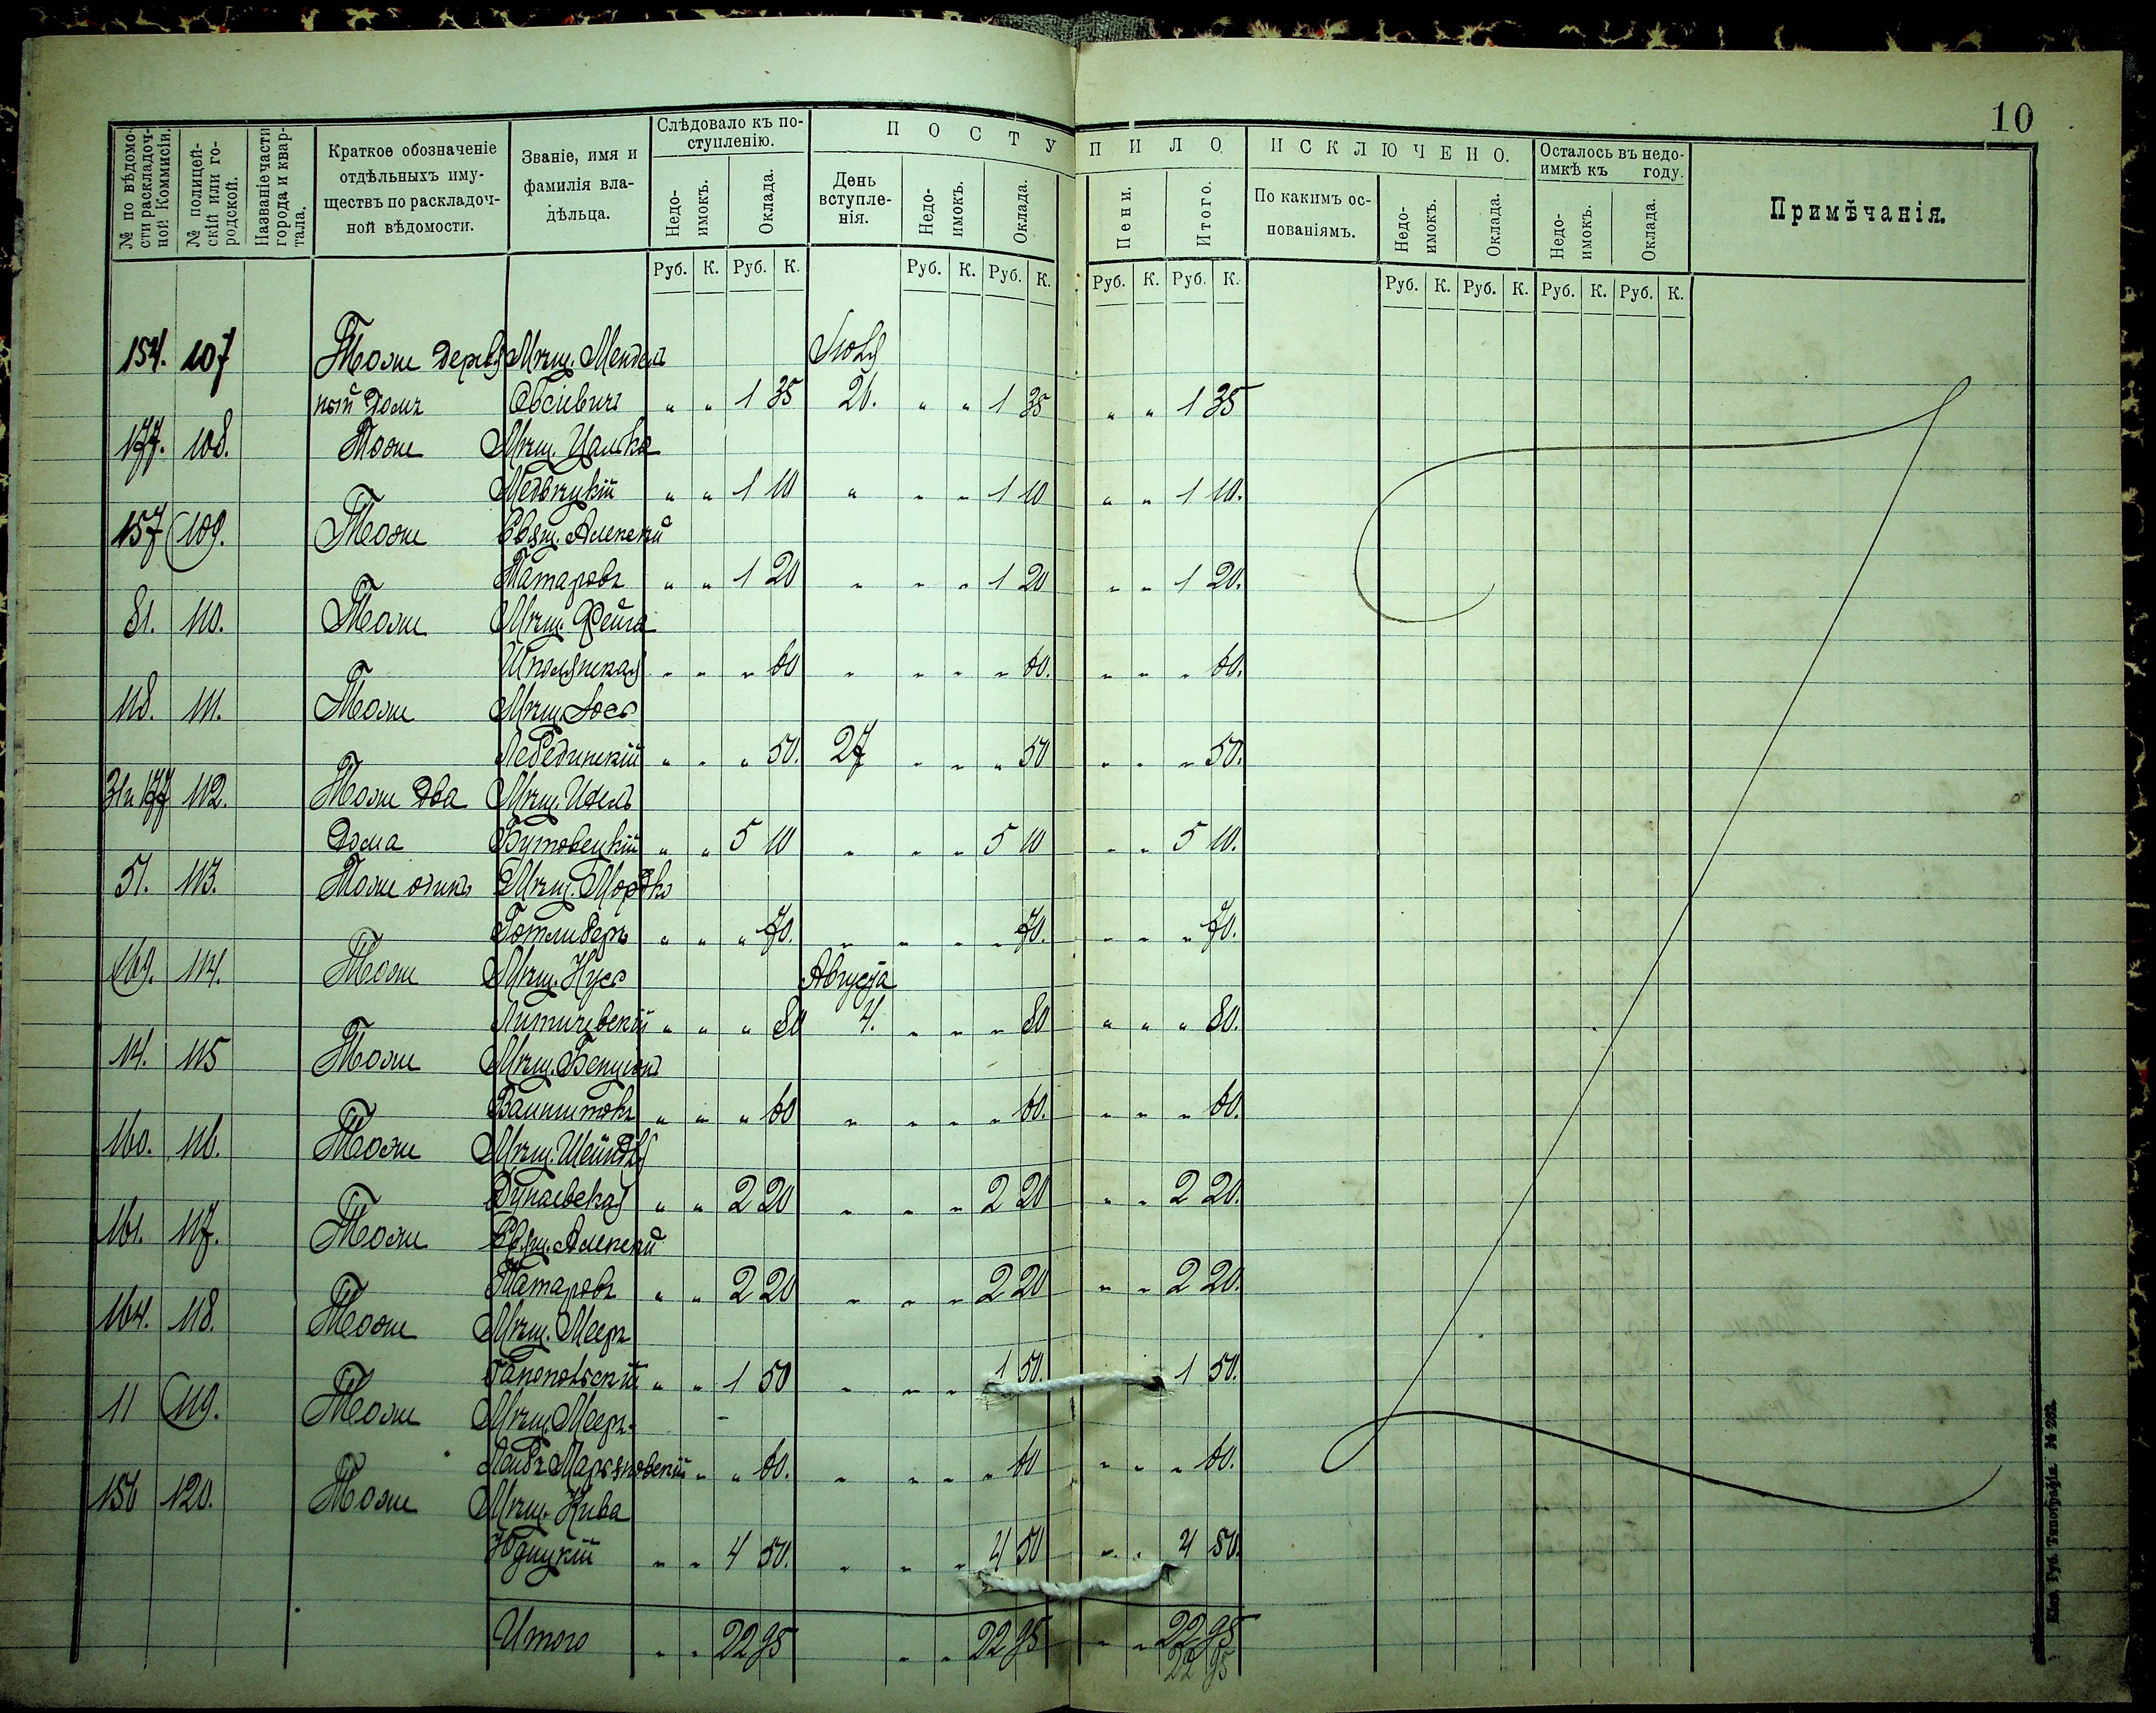 10
№ по вѣдомости раскладочной Коммисіи.
№ полицейскій или городской.
Названіе части города и квартала.
Краткое обозначеніе отдѣльныхъ имуществъ по раскладочной вѣдомости.
Званіе, имя и фамилія владѣльца.
Слѣдовало къ поступленію.
Недоимокъ.
Оклада.
ПОСТУПИЛО.
День вступленія.
Недоимокъ.
Оклада.
Пени.
Итого.
ИСКЛЮЧЕНО.
По какимъ основаніямъ.
Недоимокъ.
Оклада.
Осталось въ недоимкѣ къ году.
Недоимокъ.
Оклада.
Примѣчанія.
Руб. К. Руб. К. Руб. К. Руб. К. Руб. К. Руб. К. Руб. К. Руб. К. Руб. К. Руб. К.
154. 107 Тоже деревя Мѣщ. Мендель Іюля
ный домъ Овсіевичъ " " 1 35 26. " " 1 35 " " 1 35
177. 108. Тоже Мѣщ. Цалька
Медвецкій " " 1 10 " " " 1 10 " " 1 10.
157 109. Тоже Свящ. Алексѣй
Татаровъ " " 1 20 " " " 1 20 " " 1 20.
81. 110. Тоже Мѣщ. Фейга
Шполянская " " " 60 " " " " 60. " " " 60.
118. 111. Тоже Мѣщ. Іось
Лебединскій " " " 50. 27 " " " 50 " " " 50.
31и177 112. Тоже два Мѣщ. Ицекъ
дома Бутовецкій " " 5 10 " " " 5 10 " " 5 10.
51. 113. Тоже одинъ Мѣщ. Мордко
Готлиберъ " " " 70. " " " " 70. " " " 70.
169. 114. Тоже Мѣщ. Нусь Августа
Литичевскій " " " 80 4. " " " 80 " " " 80.
14. 115 Тоже Мѣщ. Бенціонъ
" " " 60 " " " " 60. " " " 60.
160. 116. Тоже Мѣщ. Шейндля
Дунаевская " " 2 20 " " " 2 20 " " 2 20.
161. 117. Тоже Свящ. Алексѣй
Татаровъ " " 2 20 " " " 2 20 " " 2 20.
164. 118. Тоже Мѣщ. Мееръ
Гапопольскій " " 1 50 " " " 1 50. 1 50.
11 119. Тоже Мѣщ. Мееръ-
Лейбъ Марьяновскій " " 60. " " " " 60 " " " 60.
156 120. Тоже Мѣщ. Кива
Юдицкій " " 4 50. " " " 4 50 " " 4 50.
Итого " " 22 95 " " 22 95 " " 22 95
22 95
Кіев. Губ. Типографія. № 202.